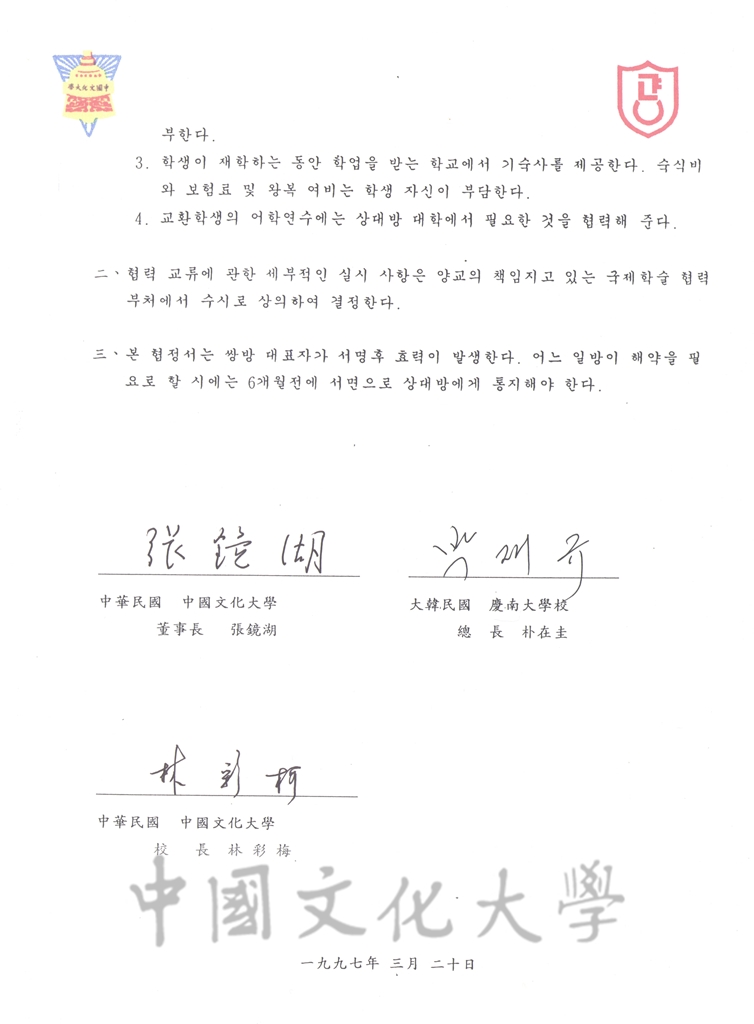 中國文化大學
부한다.
3. 학생이 재학하는 동안 학업을 받는 학교에서 기숙사를 제공한다. 숙식비
와 보험료 및 왕복 여비는 학생 자신이 부담한다.
4. 교환학생의 어학연수에는 상대방 대학에서 필요한 것을 협력해 준다.
二、협력 교류에 관한 세부적인 실시 사항은 양교의 책임지고 있는 국제학술 협력
부처에서 수시로 상의하여 결정한다.
三、본 협정서는 쌍방 대표자가 서명후 효력이 발생한다. 어느 일방이 해약을 필
요로 할 시에는 6개월전에 서면으로 상대방에게 통지해야 한다.
張鏡湖
中華民國 中國文化大學
董事長 張鏡湖
大韓民國 慶南大學校
總 長 朴在圭
林彩梅
中華民國 中國文化大學
校 長 林彩梅
中國文化大學
一九九七年 三月 二十日